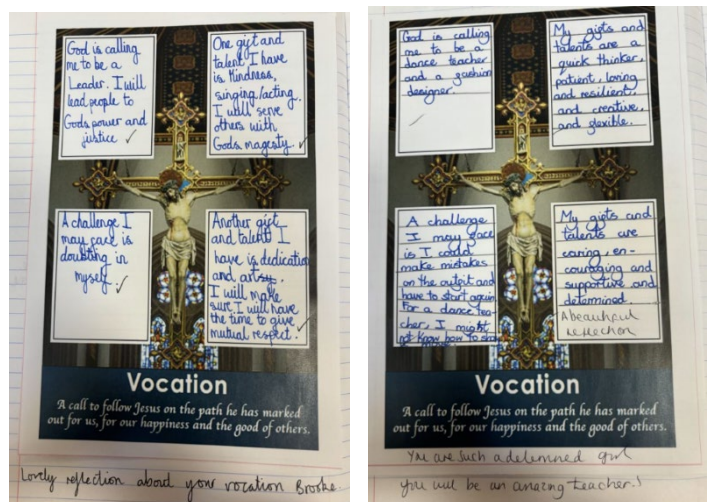 God is calling
me to be a
Leader. I will
lead people to
Gods power and
justice
One gift and
talent I have
is Kindness,
singing/acting.
I will serve
others with
Gods magesty.
A challenge I
may face is
doubting in
myself.
Another gift
and talent I
have is dedication
and artsy.
I will make
sure I will have
the time to give
mutual respect.
Vocation
A call to follow Jesus on the path he has marked
out for us, for our happiness and the good of others.
Lovely reflection about your vocation Brooke.
God is calling
me to be a
dance teacher
and a fashion
designer.
My gifts and
talents are a
quick thinker,
patient, loving
and resilient,
and creative,
and flexible.
A challenge
I may face
is I could
make mistakes
on the outfit and
have to start again.
For a dance tea-
cher, I might
not know how to
My gifts and
talents are
caring, en-
couraging and
supportive and
determined.
A beautiful
reflection
Vocation
A call to follow Jesus on the path he has marked
out for us, for our happiness and the good of others.
You are such a determined girl
you will be an amazing teacher!